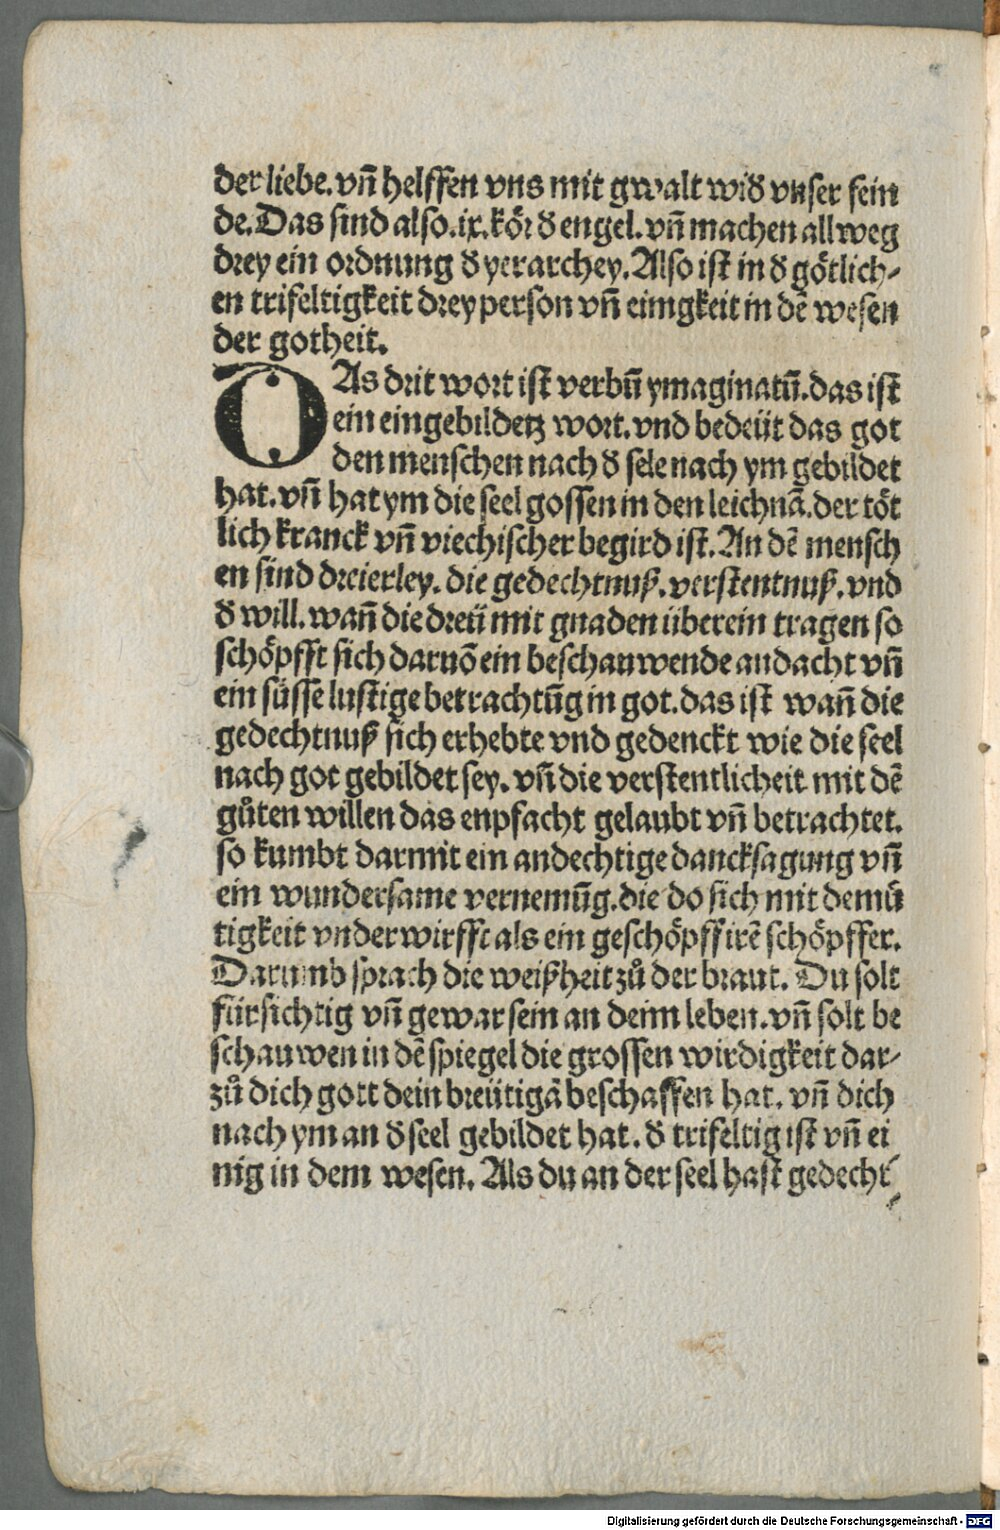 der liebe. vñ helffen vns mit gwalt wid̕ vnser fein
de. Das sind also .ix. kör d̕ engel. vñ machen allweg
drey ein ordnung d̕ yerarchey. Also ist in d̕ götlich-
en trifeltigkeit drey person vñ einigkeit in dē wesen
der gotheit.
DAs drit wort ist verbū ymaginatū. das ist
ein eingebildetz wort. vnd bedeüt das got
den menschen nach d̕ sele nach ym gebildet
hat. vñ hat ym die seel gossen in den leichnā. der töt
lich kranck vñ viechischer begird ist. An dē mensch
en sind dreierley. die gedechtnuß. verstentnuß. vnd
d̕ will. wañ die dreü mit gnaden überein tragen so
schöpfft sich daruō ein beschauwende andacht vñ
ein süsse lustige betrachtūg in got. das ist wañ die
gedechtnuß sich erhebte vnd gedenckt wie die seel
nach got gebildet sey. vñ die verstentlicheit mit dē
gůten willen das enpfacht gelaubt vñ betrachtet.
so kumbt darmit ein andechtige dancksagung vñ
ein wundersame vernemūg. die do sich mit demů
tigkeit vnderwirfft als ein geschöpff irē schöpffer.
Darumb sprach die weißheit zů der braut. Du solt
fürsichtig vñ gewar sein an deim leben. vñ solt be
schauwen in dē spiegel die grossen wirdigkeit dar-
zů dich gott dein breütigā beschaffen hat. vñ dich
nach ym an d̕ seel gebildet hat. d̕ trifeltig ist vñ ei
nig in dem wesen. Als du an der seel hast gedecht
Digitalisierung gefördert durch die Deutsche Forschungsgemeinschaft - DFG